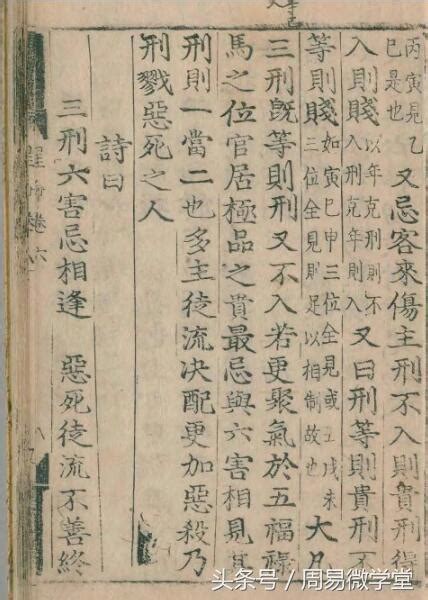 丙寅見乙
巳是也
又忌客來傷主刑不入則貴刑得
入則賤
以年克刑則不
入刑克年則入
又曰刑等則貴刑不
等則賤
如寅巳申三位全見或丑戌未
三位全見則足以相制故也
大凡
三刑旣等則刑又不入若更聚氣於五福祿
馬之位官居極品之貴最忌與六害相見其
刑則一當二也多主徒流决配更加惡殺乃
刑戮惡死之人
詩曰
三刑六害忌相逢 惡死徒流不善終
卷六
头条号 / 周易微学堂